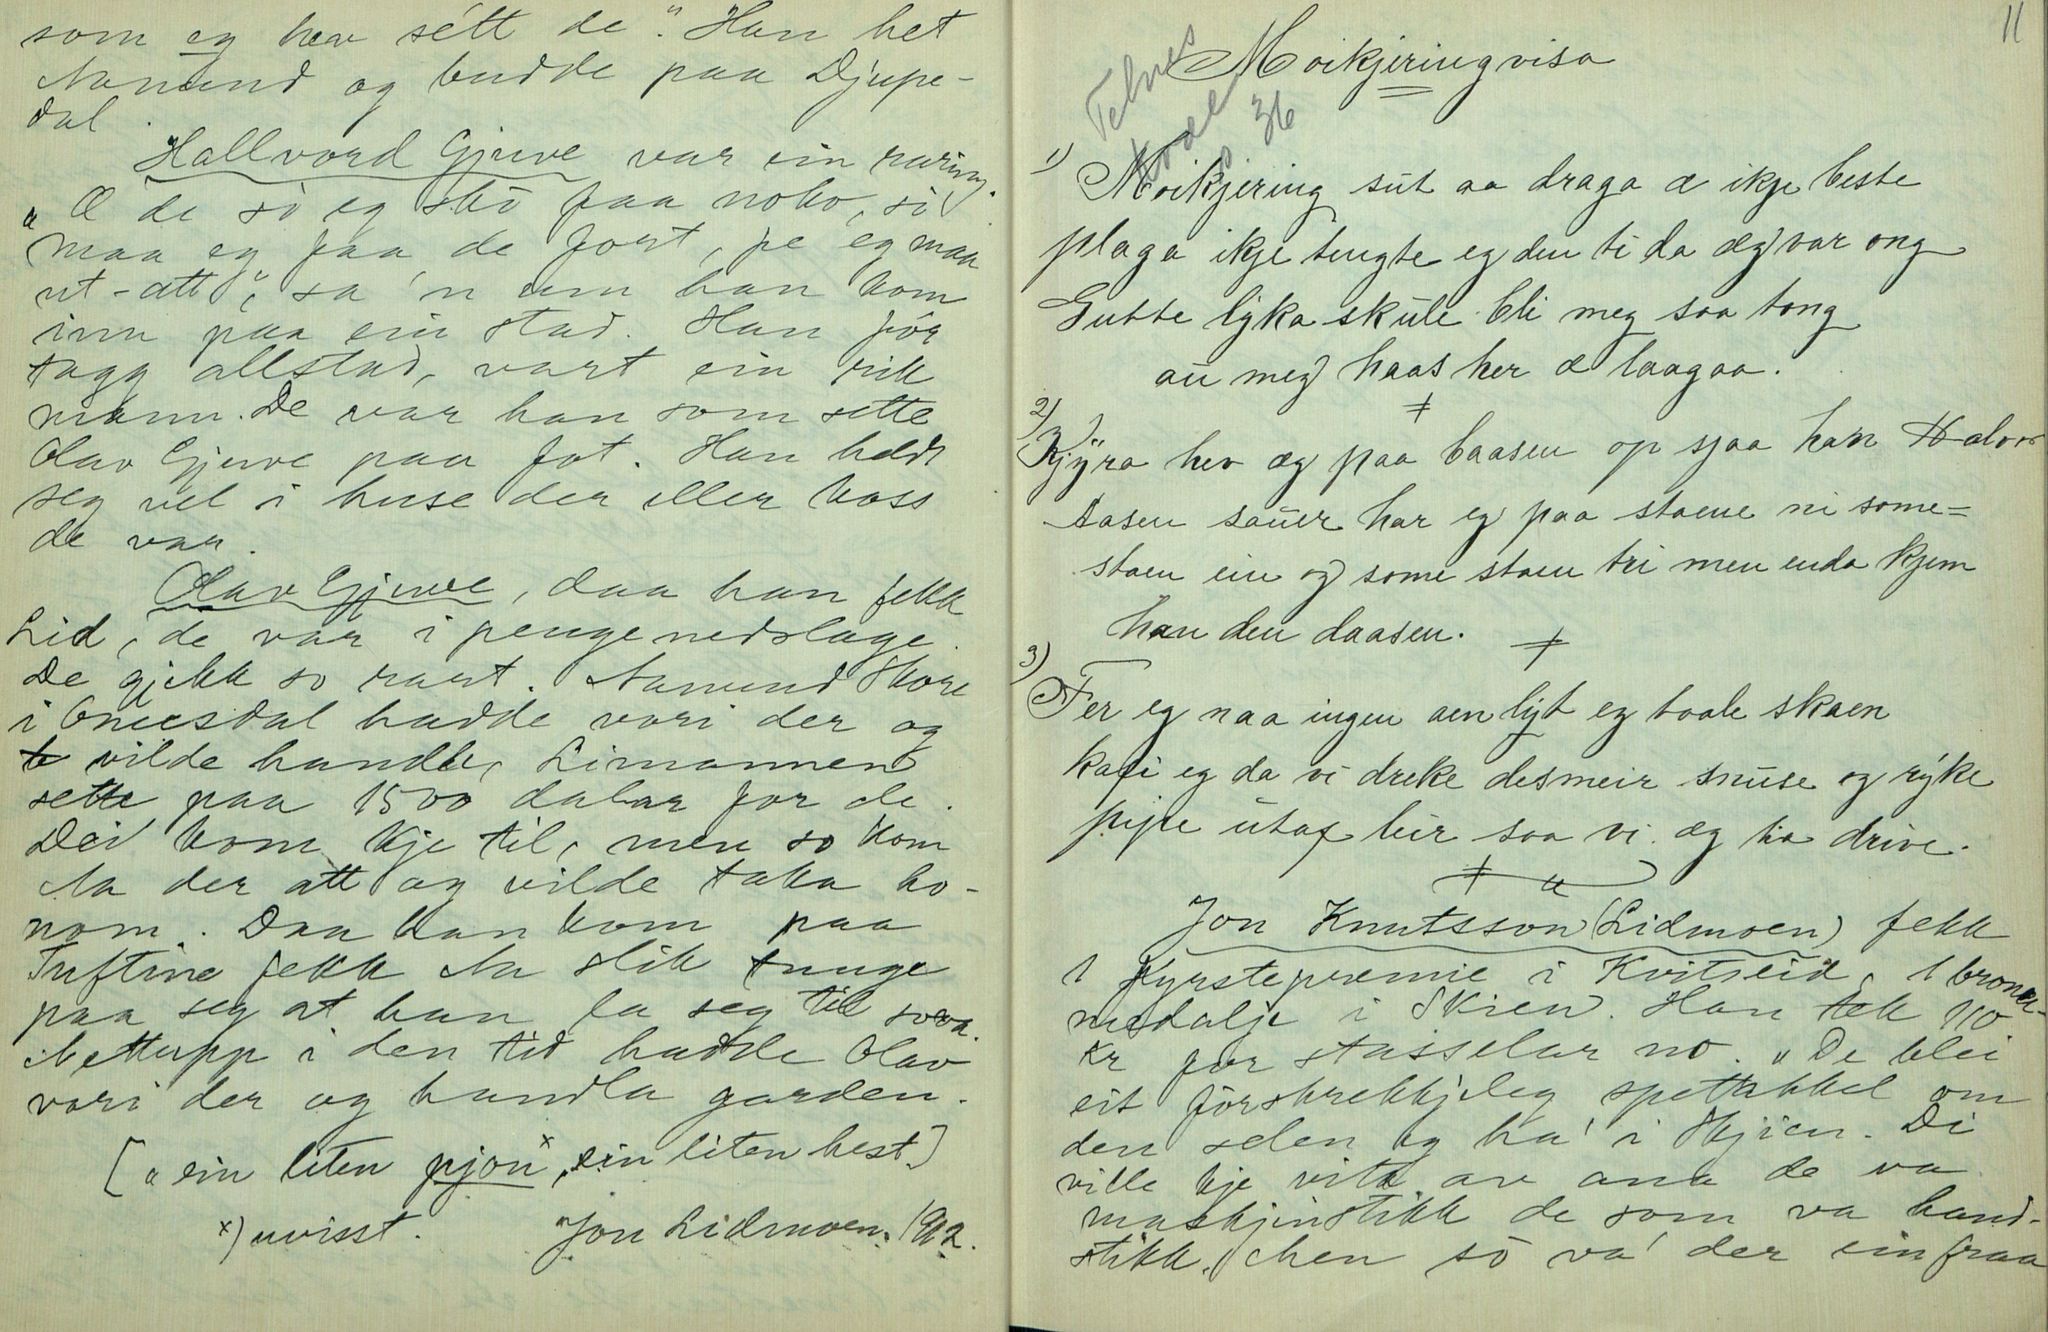 som eg hev sétt de". Han het
Aanund og budde paa Djupe-
dal.
Hallvord Gjuve var ein raring.
"Æ de so eg skò paa noko, so
maa eg paa de fort, pe eg maa
ut-att", sa 'n um han kom
inn paa ein stad. Han fór
tagg allstad, vart ein rik
mann. De var han som sette
Olav Gjuve paa fot. Han heldt
seg vel i huse der eller koss
de var.
Olav Gjuve, daa han fekk
Lid, de var i pengenedslage.
De gjekk so rart. Aanund Skore
i Ømesdal hadde vori der og
vilde handle, Limannen
sette paa 1500 dalar for de.
Dei kom kje til, men so kom
Aa der att og vilde taka ho-
nom. Daa han kom paa
Tuftine fekk Aa slik tunge
paa seg at han la seg til sova.
Nettupp i den tid hadde Olav
vori der og handla garden.
["ein liten pjon x, ein liten hest.]
x) uvisst. Jon Lidmoen. 1912.
11
Moikjeringvisa
Telnes
36
1) Moikjering sut aa draga æ ikje beste
plaga ikje tengte eg den ti da æg var ong
Gutte lyka skule bli meg saa tong
au meg haas her æ laagaa.
2) Kjyra hev æg paa baasen op sjaa han Halvor
Aasen sauer har eg paa staene ni some=
staen ein og some staen tri men enda kjem
han den daasen.
3) Fer eg naa ingen aen lyt eg taale skaen
kafi eg da vi dreke desmeir snuse og ryke
pipe utaf leir saa vi æg ha drive.
Jon Knutsson (Lidmoen) fekk
1 Fyrstepremie i Kvitseid, 1 bronse-
medalje i Skien. Han tek 110
kr for stasselar no. "De blei
eit forskrekkjeleg spettakkel om
den selen eg ha' i Skjien. Di
ville kje vita av ana de va
maskjinstikk de som va hand-
stikk. Men so va' der ein fraa